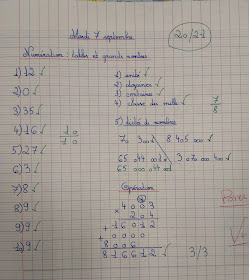 Mardi 7 septembre
20/21
Numération : tables et grands nombres
1) 12
2) 0
3) 35
4) 16
5) 27
6) 3
7) 8
8) 9
9) 9
10) 9
10
10
1) unité
2) dizaines
3) centaines
4) classe des mille
7
8
5) dictée de nombres
8 405 000
3 070 000
65 000 044
Opération
4003
× 204
16012
+ 0000
+ 8006
816612
3/3